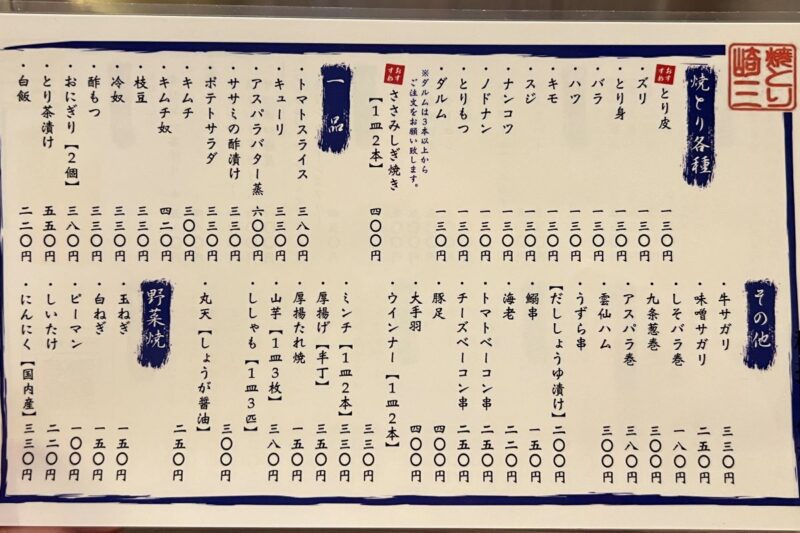 焼とり 崎三
焼とり各種
おすすめ
・とり皮 一三〇円
・ズリ 一三〇円
・とり身 一三〇円
・ハツ 一三〇円
・バラ 一三〇円
・キモ 一三〇円
・スジ 一三〇円
・ナンコツ 一三〇円
・ノドナン 一三〇円
・とりもつ 一三〇円
・ダルム 一三〇円
※ダルムは3本以上から
ご注文をお願い致します。
おすすめ
・ささみしぎ焼き
【1皿2本】 四〇〇円
一品
・トマトスライス 三八〇円
・キューリ 三三〇円
・アスパラバター蒸 六〇〇円
・ササミの酢漬け 三三〇円
・ポテトサラダ 三三〇円
・キムチ 三〇〇円
・キムチ奴 四二〇円
・枝豆 三三〇円
・冷奴 三三〇円
・酢もつ 三三〇円
・おにぎり【2個】 三八〇円
・とり茶漬け 五五〇円
・白飯 二二〇円
その他
・牛サガリ 三三〇円
・味噌サガリ 二五〇円
・しそバラ巻 一八〇円
・九条葱巻 三〇〇円
・アスパラ巻 三八〇円
・雲仙ハム 三〇〇円
・うずら串
【だししょうゆ漬け】 二〇〇円
・鰯串 一五〇円
・海老 二二〇円
・トマトベーコン串 二五〇円
・チーズベーコン串 二五〇円
・豚足 四〇〇円
・大手羽 四〇〇円
・ウインナー【1皿2本】 三三〇円
・ミンチ【1皿2本】 三三〇円
・厚揚げ【半丁】 三五〇円
・厚揚たれ焼 一五〇円
・山芋【1皿3枚】 三八〇円
・ししゃも【1皿3匹】 三〇〇円
・丸天【しょうが醤油】 二五〇円
野菜焼
・玉ねぎ 一五〇円
・白ねぎ 一五〇円
・ピーマン 一〇〇円
・しいたけ 二二〇円
・にんにく【国内産】 三三〇円